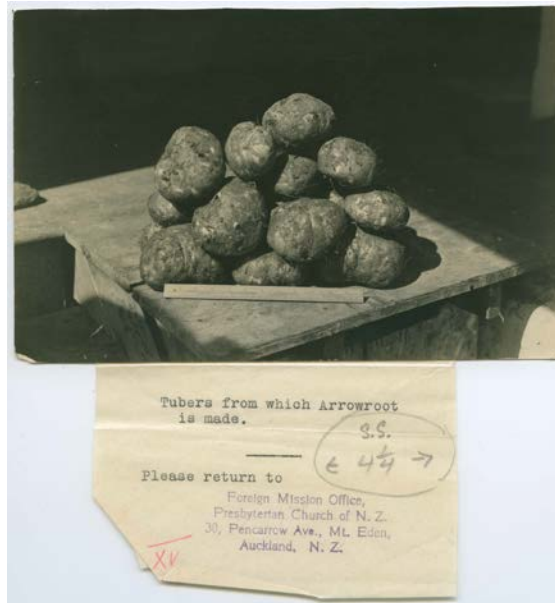 Tubers from which Arrowroot
is made.
S.S.
← 4 1/4 →
Please return to
Foreign Mission Office,
Presbyterian Church of N. Z.
30, Pencarrow Ave., Mt. Eden,
Auckland, N. Z.
XV